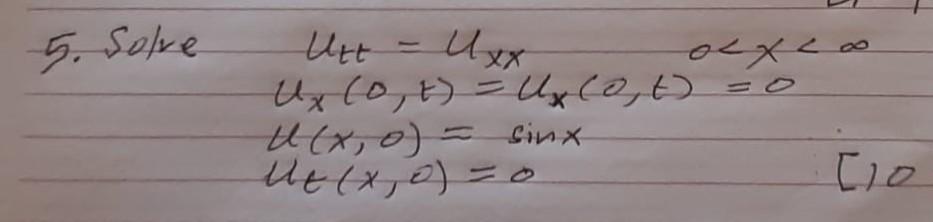 5. Solve Utt = Uxx 0 < x < ∞
Ux (0, t) = Ux (0, t) = 0
U(x, 0) = sinx
Ut (x, 0) = 0 [10